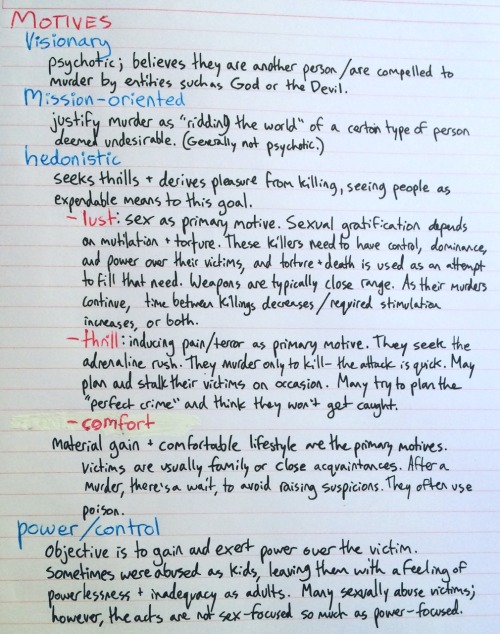 MOTIVES
Visionary
psychotic; believes they are another person/are compelled to
murder by entities such as God or the Devil.
Mission-oriented
justify murder as "ridding the world" of a certain type of person
deemed undesirable. (Generally not psychotic.)
hedonistic
seeks thrills + derives pleasure from killing, seeing people as
expendable means to this goal.
- lust: sex as primary motive. Sexual gratification depends
on mutilation + torture. These killers need to have control, dominance,
and power over their victims, and torture + death is used as an attempt
to fill that need. Weapons are typically close range. As their murders
continue, time between killings decreases/required stimulation
increases, or both.
- thrill: inducing pain/terror as primary motive. They seek the
adrenaline rush. They murder only to kill- the attack is quick. May
plan and stalk their victims on occasion. Many try to plan the
"perfect crime" and think they won't get caught.
- comfort
Material gain + comfortable lifestyle are the primary motives.
Victims are usually family or close acquaintances. After a
murder, there's a wait, to avoid raising suspicions. They often use
poison.
power/control
Objective is to gain and exert power over the victim.
Sometimes were abused as kids, leaving them with a feeling of
powerlessness + inadequacy as adults. Many sexually abuse victims;
however, the acts are not sex-focused so much as power-focused.